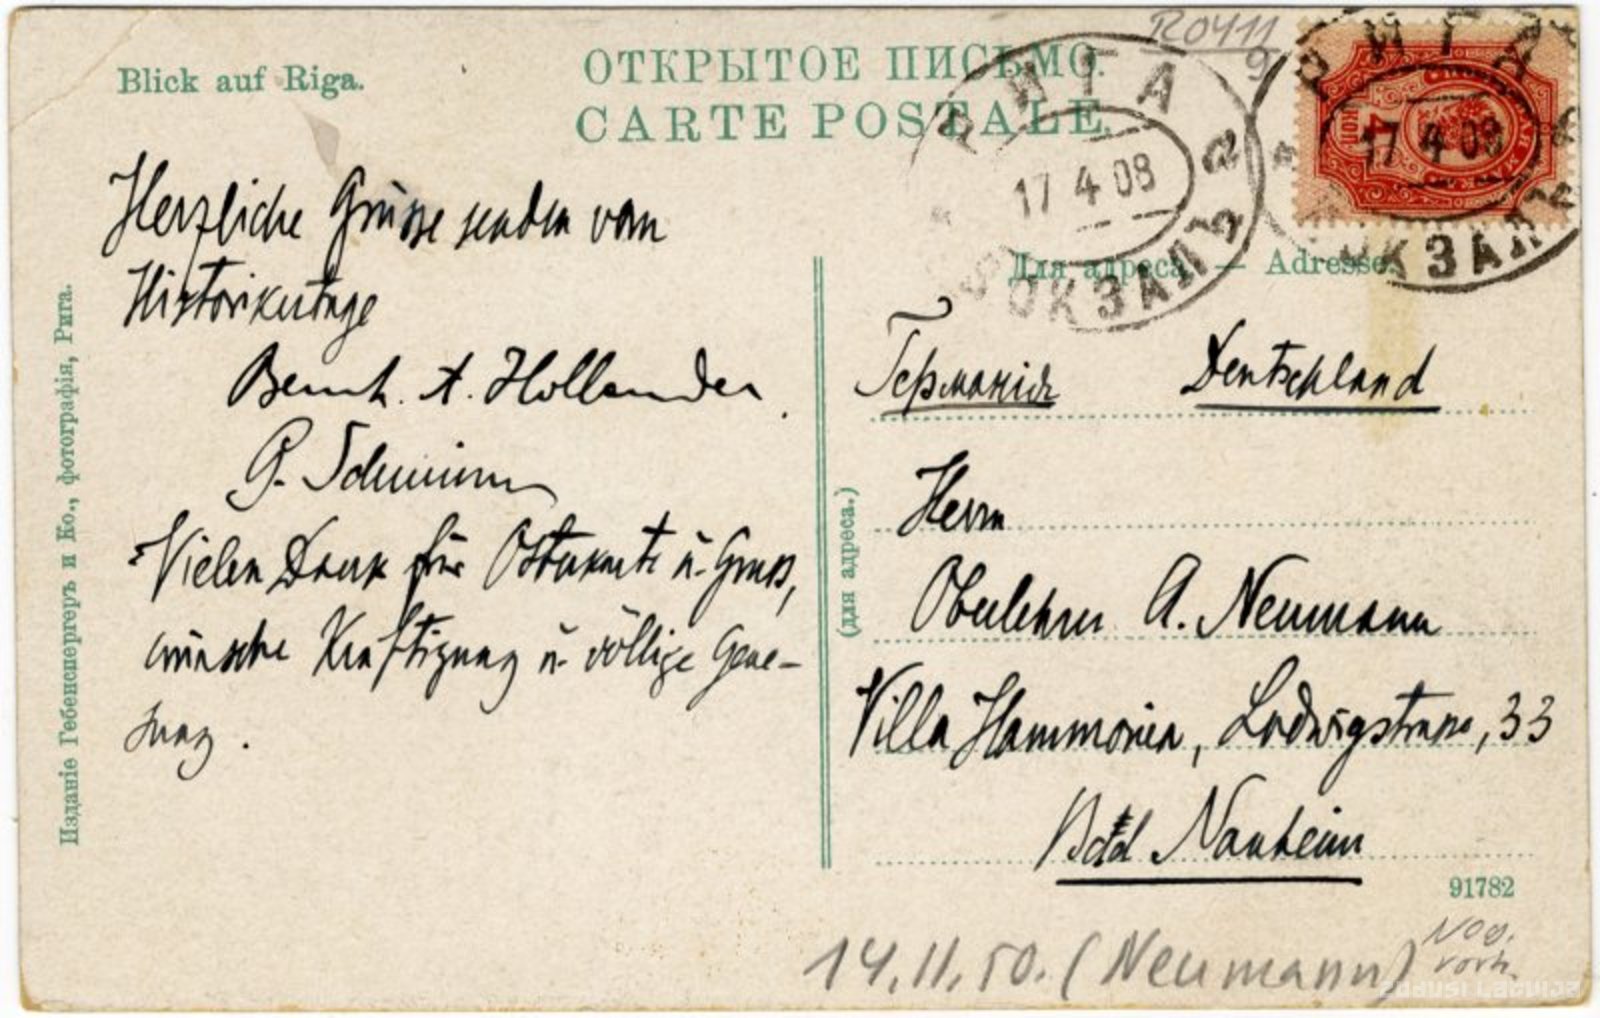 Blick auf Riga.
ОТКРЫТОЕ ПИСЬМО.
CARTE POSTALE.
R0411
9
РИГА
17 4 08
ВОКЗАЛЪ
РИГА
17 4 08
ВОКЗАЛЪ
4 КОП
Для адреса. — Adresse.
Herzliche Grüsse senden vom
Historikertage
Bernh. A. Hollander.
Vielen Dank für Osterkarte u. Gruss,
wünsche Kräftigung u. völlige Gene-
sung.
Изданіе Гебенспергеръ и Ко., фотографія, Рига.
(для адреса.)
Германія Deutschland
Herrn
Oberlehrer A. Neumann
Villa Hammonia, Ludwigstrasse, 33
Bad Nauheim
91782
14.11.50. (Neumann)
Neg.
vorh.
zudusi Latvija